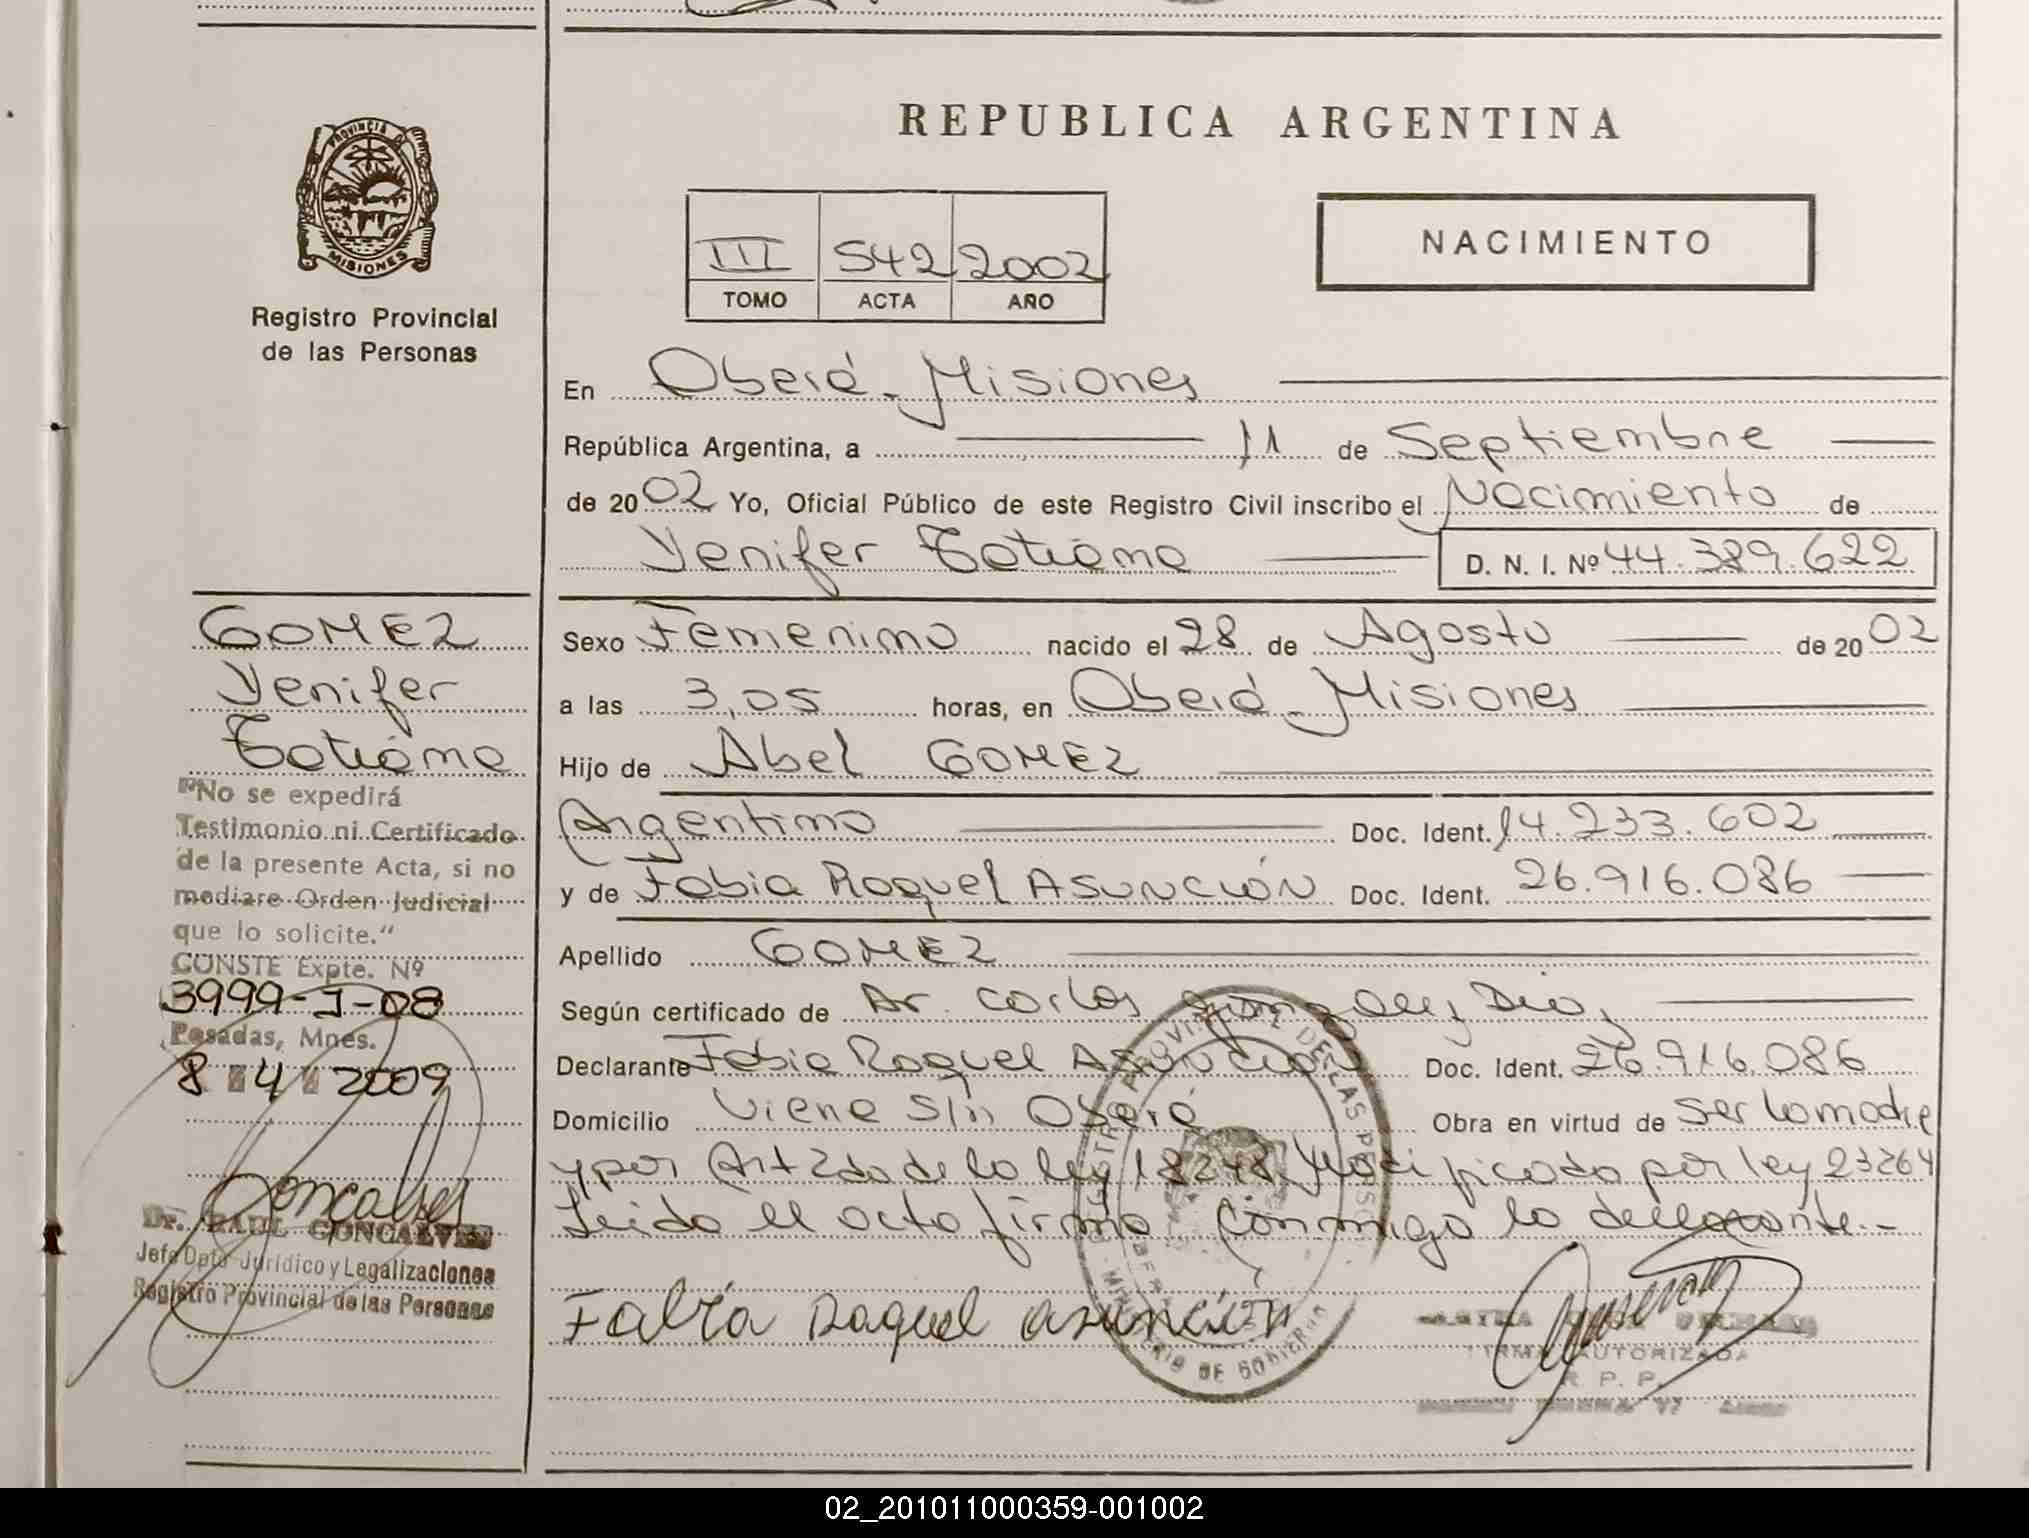 REPUBLICA ARGENTINA
PROVINCIA DE
MISIONES
Registro Provincial
de las Personas
III 542 2002
TOMO ACTA AÑO
NACIMIENTO
En Oberá - Misiones
República Argentina, a 11 de Septiembre
de 2002 Yo, Oficial Público de este Registro Civil inscribo el Nacimiento de
Yenifer Tatiana D. N. I. Nº 44.389.622
Sexo Femenino nacido el 28 de Agosto de 2002
a las 3,05 horas, en Oberá - Misiones
Hijo de Abel GOMEZ
Argentino Doc. Ident. 14.233.602
y de Fabia Raquel ASUNCIÓN Doc. Ident. 26.916.086
Apellido GOMEZ
Según certificado de Dr. Carlos
Declarante Fabia Raquel ASUNCION Doc. Ident. 26.916.086
Domicilio Viene S/n Oberá Obra en virtud de ser la madre
y por Art 2do de la ley 18248 Modificada por ley 23264
Leido el acta firma conmigo la declarante.-
Fabia Raquel asunción
FIRMA AUTORIZADA
R. P. P.
GOMEZ
Yenifer
Tatiana
"No se expedirá
Testimonio ni Certificado
de la presente Acta, si no
mediare Orden Judicial
que lo solicite."
CONSTE Expte. Nº
3999-J-08
Posadas, Mnes.
8 - 4 - 2009
Goncalves
Dr. RAUL GONCALVES
Jefe Dpto Jurídico y Legalizaciones
Registro Provincial de las Personas
MINISTERIO DE GOBIERNO
02_201011000359-001002